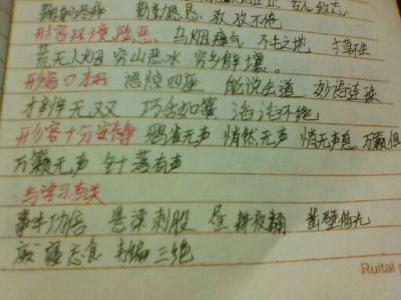 勤勤恳恳 孜孜不倦
形容环境险恶 乌烟瘴气 不毛之地 寸草不生
荒无人烟 穷山恶水 穷乡僻壤。
形容口才好 语惊四座 能说会道 妙语连珠
才辩无双 巧舌如簧 滔滔不绝
形容十分安静 鸦雀无声 悄然无声 悄无声息 万籁俱
万籁无声 针落有声
与学习有关
事半功倍 悬梁刺股 昼耕夜诵 凿壁借光
废寝忘食 韦编三绝
Ruital